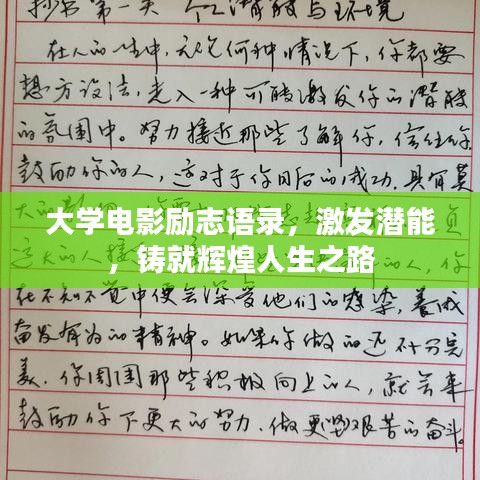 抄书第一天 个人潜能与环境
在人的一生中,无论何种情况下,你都要
想方设法,走入一种可能激发你的潜能
的氛围中。努力接近那些了解你,信任你,
鼓励你的人,这对于你日后的成功,具有莫
大的
大学电影励志语录,激发潜能
,铸就辉煌人生之路
在不知不觉中便会深受他们的感染,养成
奋发有为的精神。如果你做的还不十分完
美,你周围那些积极向上的人,就会来
鼓励你下更大的努力,做更坚艰苦的奋斗。